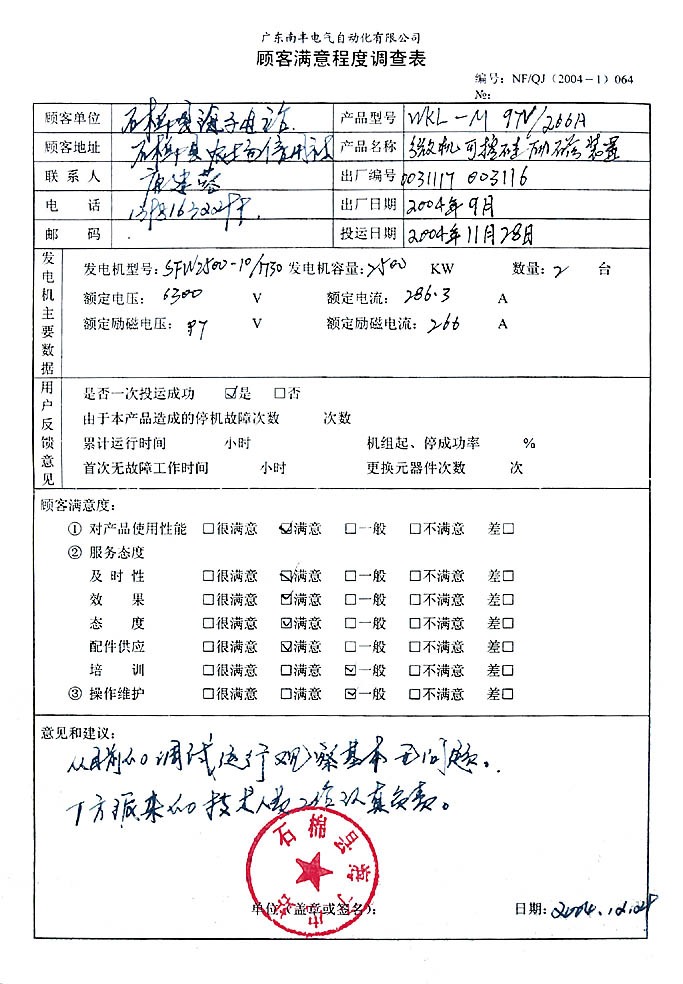 广东南丰电气自动化有限公司
顾客满意程度调查表
编号：NF/QJ（2004－1）064
№:
顾客单位 石棉县 电站 产品型号 WKL－M 97V/266A
顾客地址 石棉县 信用社 产品名称 微机可控硅励磁装置
联系人 产品编号 0031117 003116
电话 出厂日期 2004年9月
邮码 投运日期 2004年11月28日
发电机主要数据
发电机型号: SFW2500-10/1730 发电机容量: 2500 KW 数量: 2 台
额定电压: 6300 V 额定电流: 286.3 A
额定励磁电压: 97 V 额定励磁电流: 266 A
用户反馈意见
是否一次投运成功 ☑是 □否
由于本产品造成的停机故障次数 次数
累计运行时间 小时 机组起、停成功率 %
首次无故障工作时间 小时 更换元器件次数 次
顾客满意度:
① 对产品使用性能 □很满意 ☑满意 □一般 □不满意 差□
② 服务态度
及时性 □很满意 ☑满意 □一般 □不满意 差□
效果 □很满意 ☑满意 □一般 □不满意 差□
态度 □很满意 ☑满意 □一般 □不满意 差□
配件供应 □很满意 ☑满意 □一般 □不满意 差□
培训 □很满意 □满意 ☑一般 □不满意 差□
③ 操作维护 □很满意 □满意 ☑一般 □不满意 差□
意见和建议:
从目前的调试运行观察基本无问题。
厂方派来的技术人员工作认真负责。
石棉县 电站
单位（盖章或签名）: 日期: 2004.12.